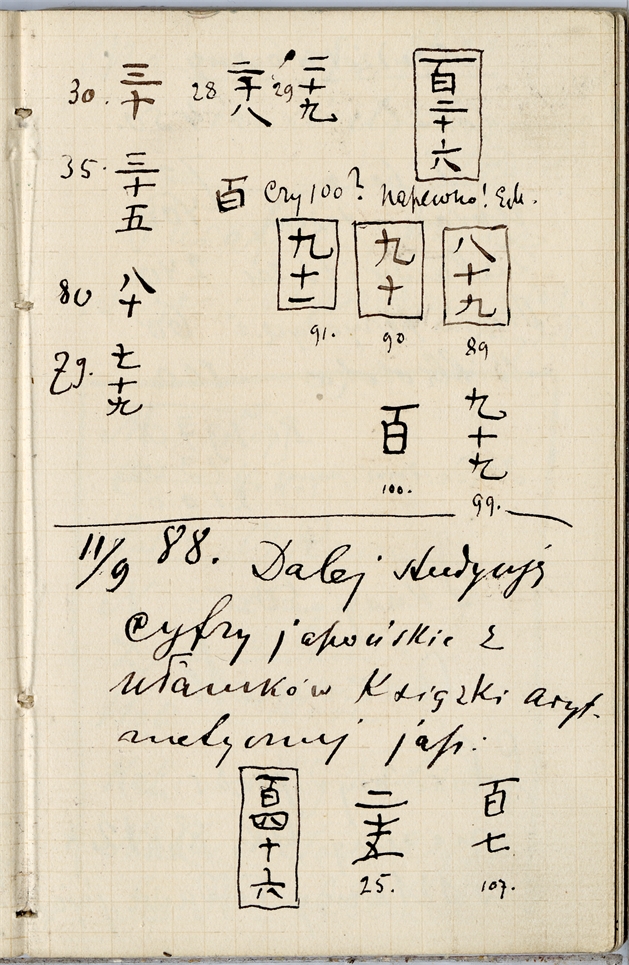 30. 三十 28 二十八 29 二十九 百二十六
35. 三十五 百 Czy 100? napewno!
80 八十 九十一 九十 八十九
91. 90 89
79. 七十九
百 九十九
100. 99.
11/9 88. Dalej studyuję
cyfry japońskie z
ułamków Książki aryt-
metycznej jap:
百四十六 二十五 百七
25. 107.